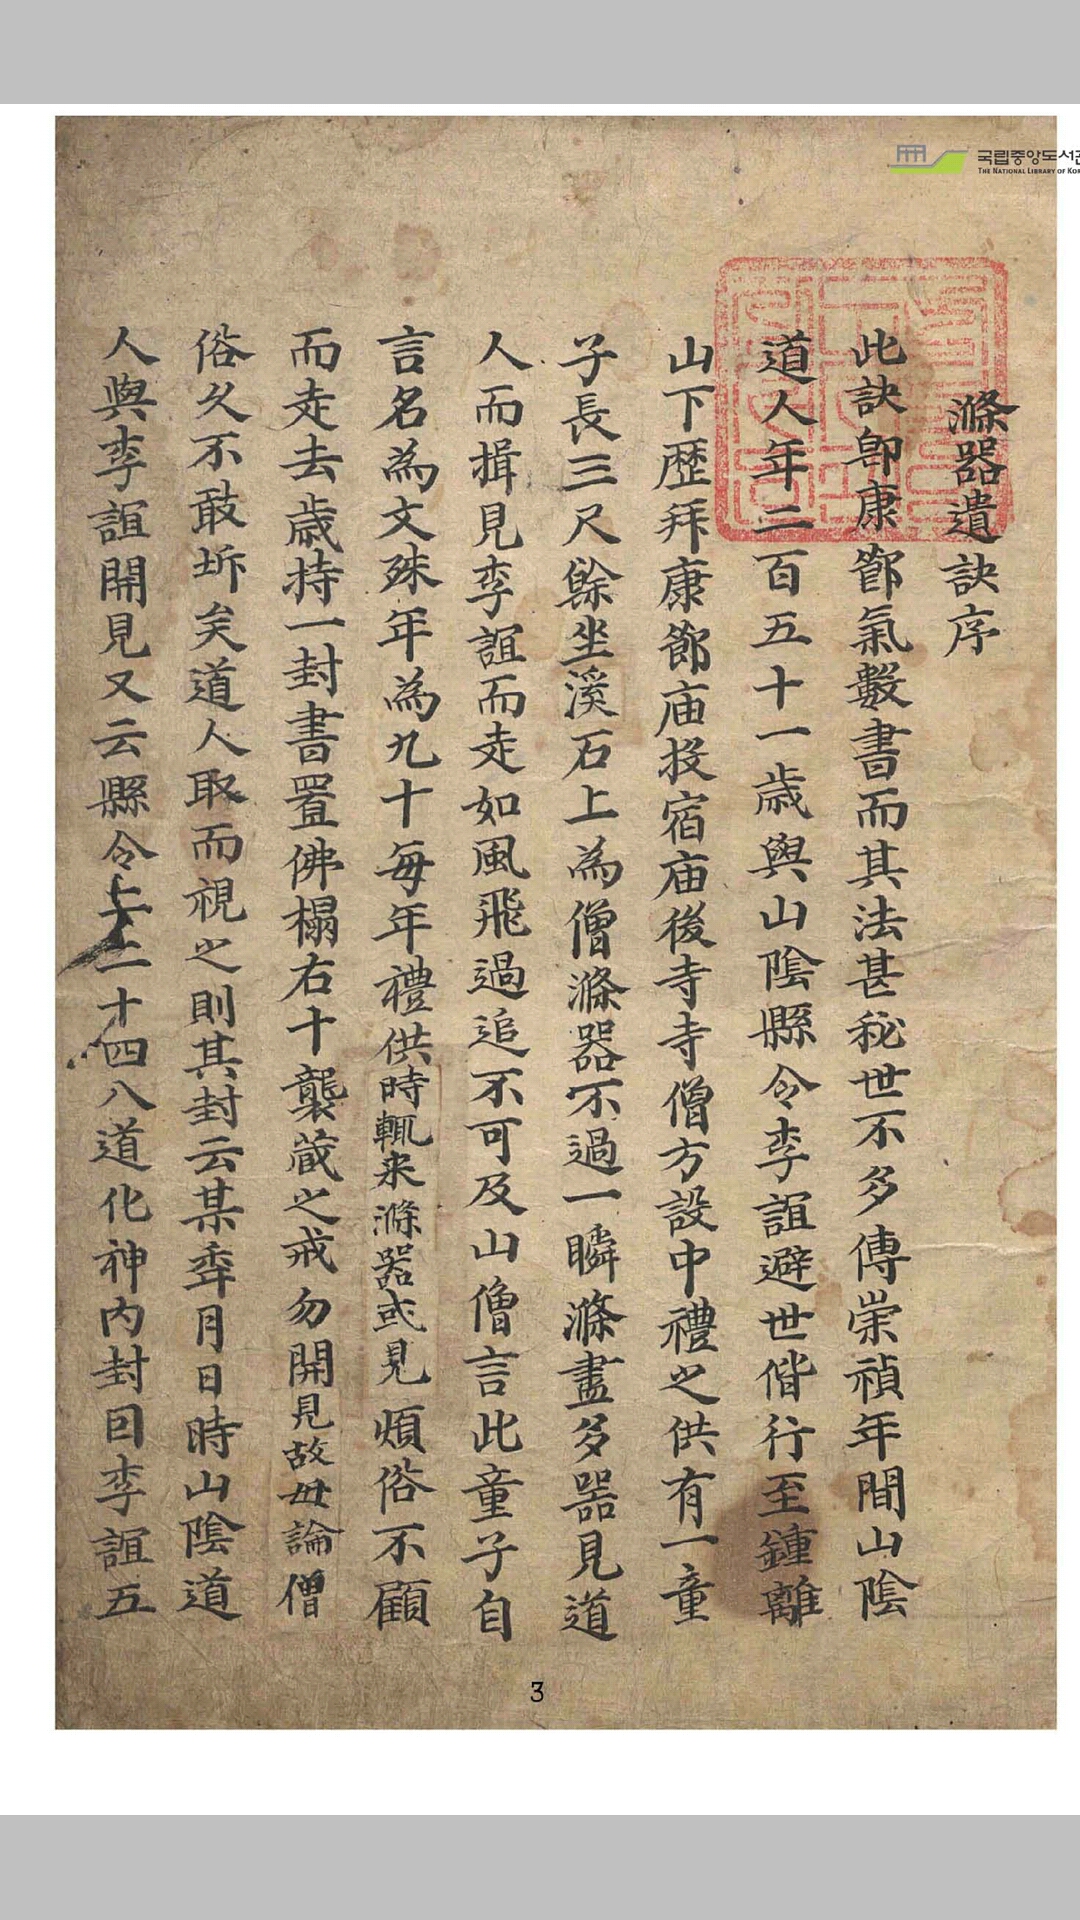 국립중앙도서관
THE NATIONAL LIBRARY OF KOR
滌器遺訣序
此訣卽康節氣數書而其法甚秘世不多傳崇禎年間山陰
道人年二百五十一歲與山陰縣令李誼避世偕行至鍾離
山下歷拜康節庙投宿庙後寺寺僧方設中禮之供有一童
子長三尺餘坐溪石上為僧滌器不過一瞬滌盡多器見道
人而揖見李誼而走如風飛過追不可及山僧言此童子自
言名為文殊年為九十每年禮供時輒来滌器或見煩俗不顧
而走去歲持一封書置佛榻右十襲藏之戒勿開見故毋論僧
俗久不敢坼矣道人取而視之則其封云某年月日時山陰道
人與李誼開見又云縣令上二十四八道化神內封曰李誼五
3